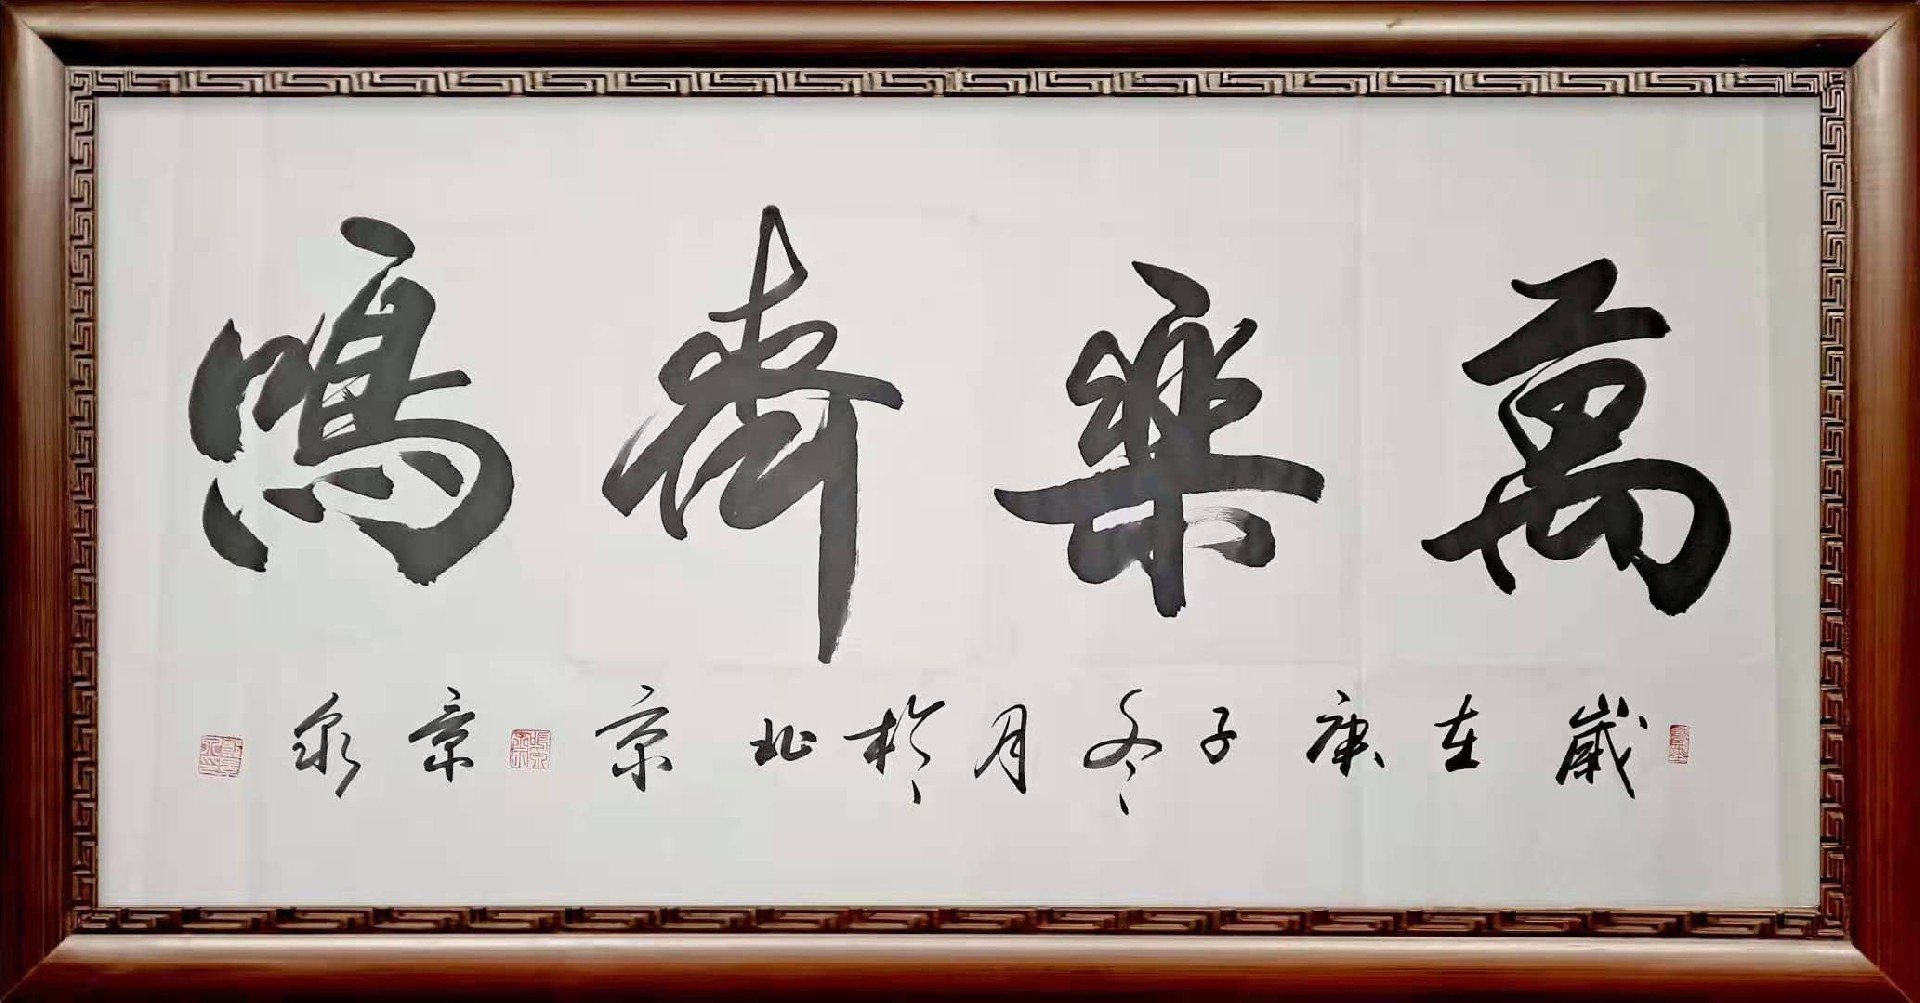 萬樂齊鳴
歲在庚子冬月於北京景泉